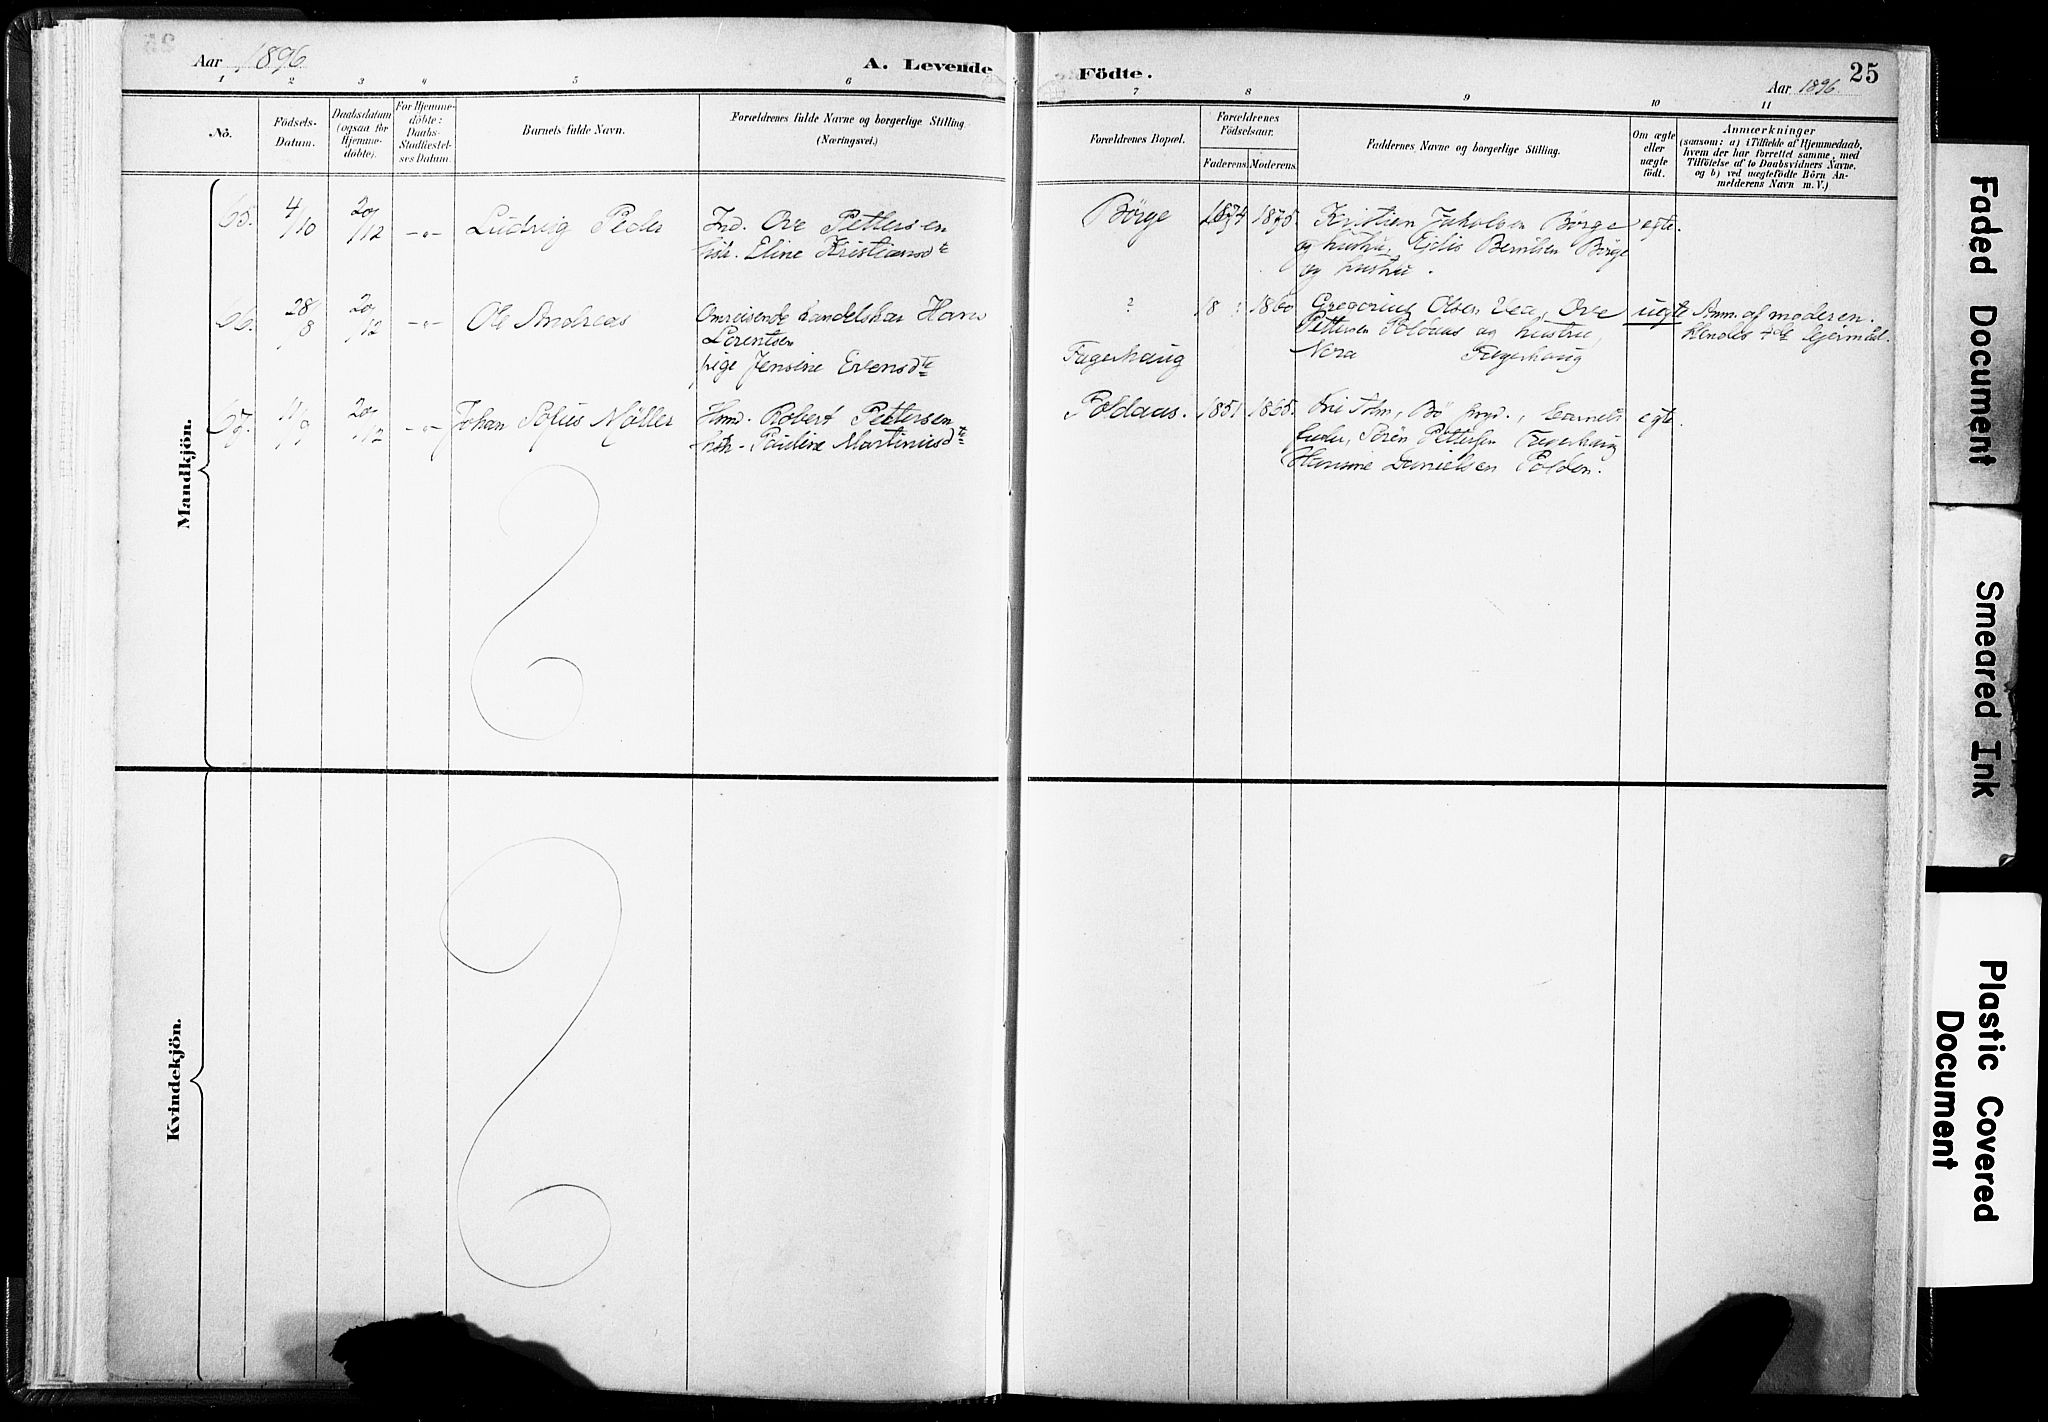 Aar 1896
A. Levende
Födte.
25
Aar 1896
1 2 3 4 5 6 7 8 9 10 11
No.
Födsels-
Datum.
Daabsdatum
(ogsaa for
Hjemme-
döbte).
For Hjemme-
döbte:
Daabs-
Stadfæstel-
ses Datum.
Barnets fulde Navn.
Forældrenes fulde Navne og borgerlige Stilling
(Næringsvei.)
Forældrenes Bopæl.
Forældrenes
Födselsaar.
Faderens.
Moderens.
Faddernes Navne og borgerlige Stilling.
Om ægte
eller
uægte
födt.
Anmærkninger
(saasom: a) i Tilfælde af Hjemmedaab,
hvem der har forrettet samme, med
Tilföielse af to Daabsvidners Navne.
og b) ved uægtefödte Börn An-
melderens Navn m. V.)
Mandkjön.
65. 4/10 20/12 -"- Ludvig Peder
Ind. Ove Pettersen
hstr. Eline Kristiansdt
Börge 1874 1875.
Kristian Jakobsen Börge
og hustru, Berntsen Börge
og hustru.
egte.
66. 28/8 20/12 -"- Ole Andreas
Omreisende handelskar Hans
Lorentsen
pige Jensine Evensdt
?
Fagerhaug
18 ? 1860
Gregorius Olsen Vea, Ove
Pettersen Poldaas og hustru,
Nora Fagerhaug
uegte
Anm. af moderen.
4de leiermål.
67. 11/9 20/12 -"- Johan Sofius Möller
Hmd. Robert Pettersen
hstr. Pauline Martinusdt
Poldaas. 1851 1865.
Bö
Sören Pettersen Fagerhaug
Hanine Danielsen Polden.
egte.
Kvindekjön.
Faded Document
Smeared Ink
Plastic Covered
Document